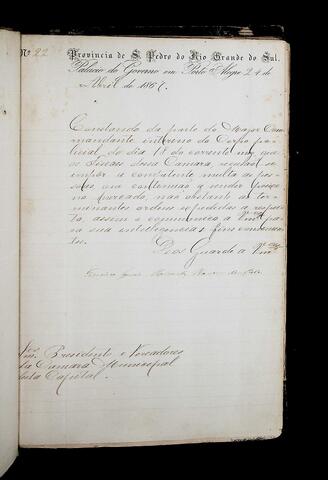 Nº 22
Provincia de S. Pedro do Rio Grande do Sul.
Palacio do Governo em Porto Alegre 24 de
Abril de 1867.
Constando da parte do Major Com
mandante interino do Corpo po
licial do dia 18 do corrente mez que
os Fiscaes dessa Camara,
impor a competente multa as pes
soas, que continuão a vender
no mercado, não obstante as ter
minantes ordens expedidas a respei
to, assim o communico a Vmces pa
ra sua intelligencia e fins convenien
tes.
Deos Guarde a Vmces
Francisco
Snres Presidente e Vereadores
da Camara Municipal
desta Capital.